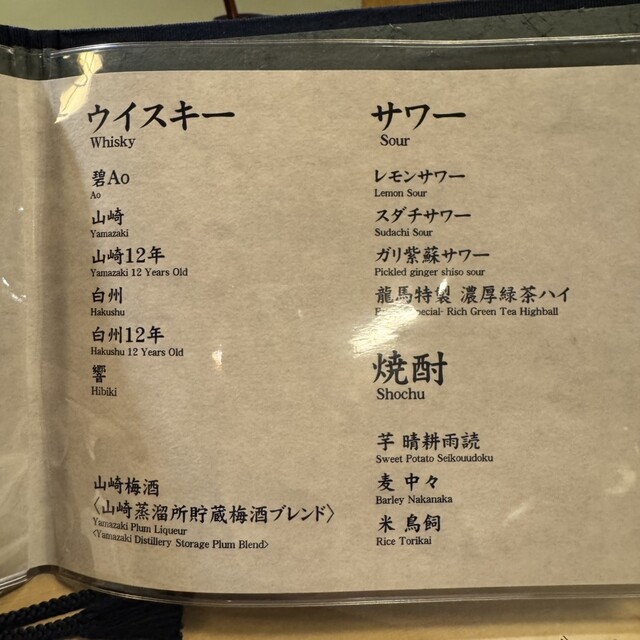 ウイスキー
Whisky
碧Ao
Ao
山崎
Yamazaki
山崎12年
Yamazaki 12 Years Old
白州
Hakushu
白州12年
Hakushu 12 Years Old
響
Hibiki
山崎梅酒
〈山崎蒸溜所貯蔵梅酒ブレンド〉
Yamazaki Plum Liqueur
<Yamazaki Distillery Storage Plum Blend>
サワー
Sour
レモンサワー
Lemon Sour
スダチサワー
Sudachi Sour
ガリ紫蘇サワー
Pickled ginger shiso sour
龍馬特製 濃厚緑茶ハイ
Special- Rich Green Tea Highball
焼酎
Shochu
芋 晴耕雨読
Sweet Potato Seikouudoku
麦 中々
Barley Nakanaka
米 鳥飼
Rice Torikai